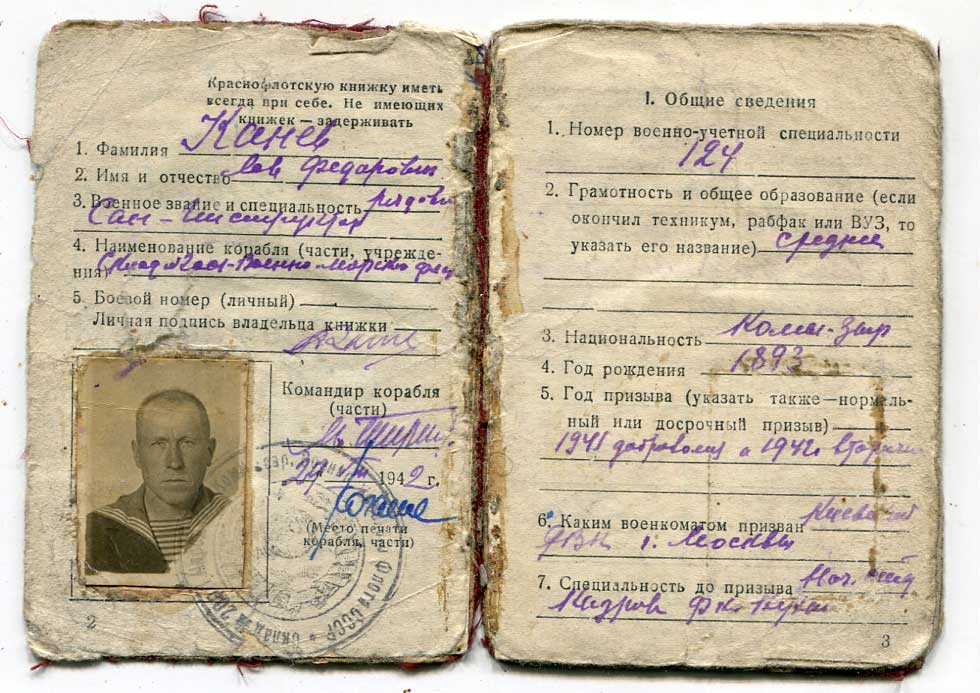 Краснофлотскую книжку иметь
всегда при себе. Не имеющих
книжек — задерживать
1. Фамилия Канев
2. Имя и отчество Лев Федарович
3. Военное звание и специальность рядовой
Сан-Инструктор
4. Наименование корабля (части, учрежде-
ния)
5. Боевой номер (личный)
Личная подпись владельца книжки
Командир корабля
(части)
"29" VIII 1942 г.
(Место печати
корабля, части)
Флота СССР • Склад №
2
I. Общие сведения
1. Номер военно-учетной специальности
124
2. Грамотность и общее образование (если
окончил техникум, рабфак или ВУЗ, то
указать его название) среднее
3. Национальность Коми-Зыр
4. Год рождения 1893
5. Год призыва (указать также—нормаль-
ный или досрочный призыв)
1941 доброволец а 1942 вторично
6. Каким военкоматом призван Киевский
РВК г. Москвы
7. Специальность до призыва Нач.
Кадров
3